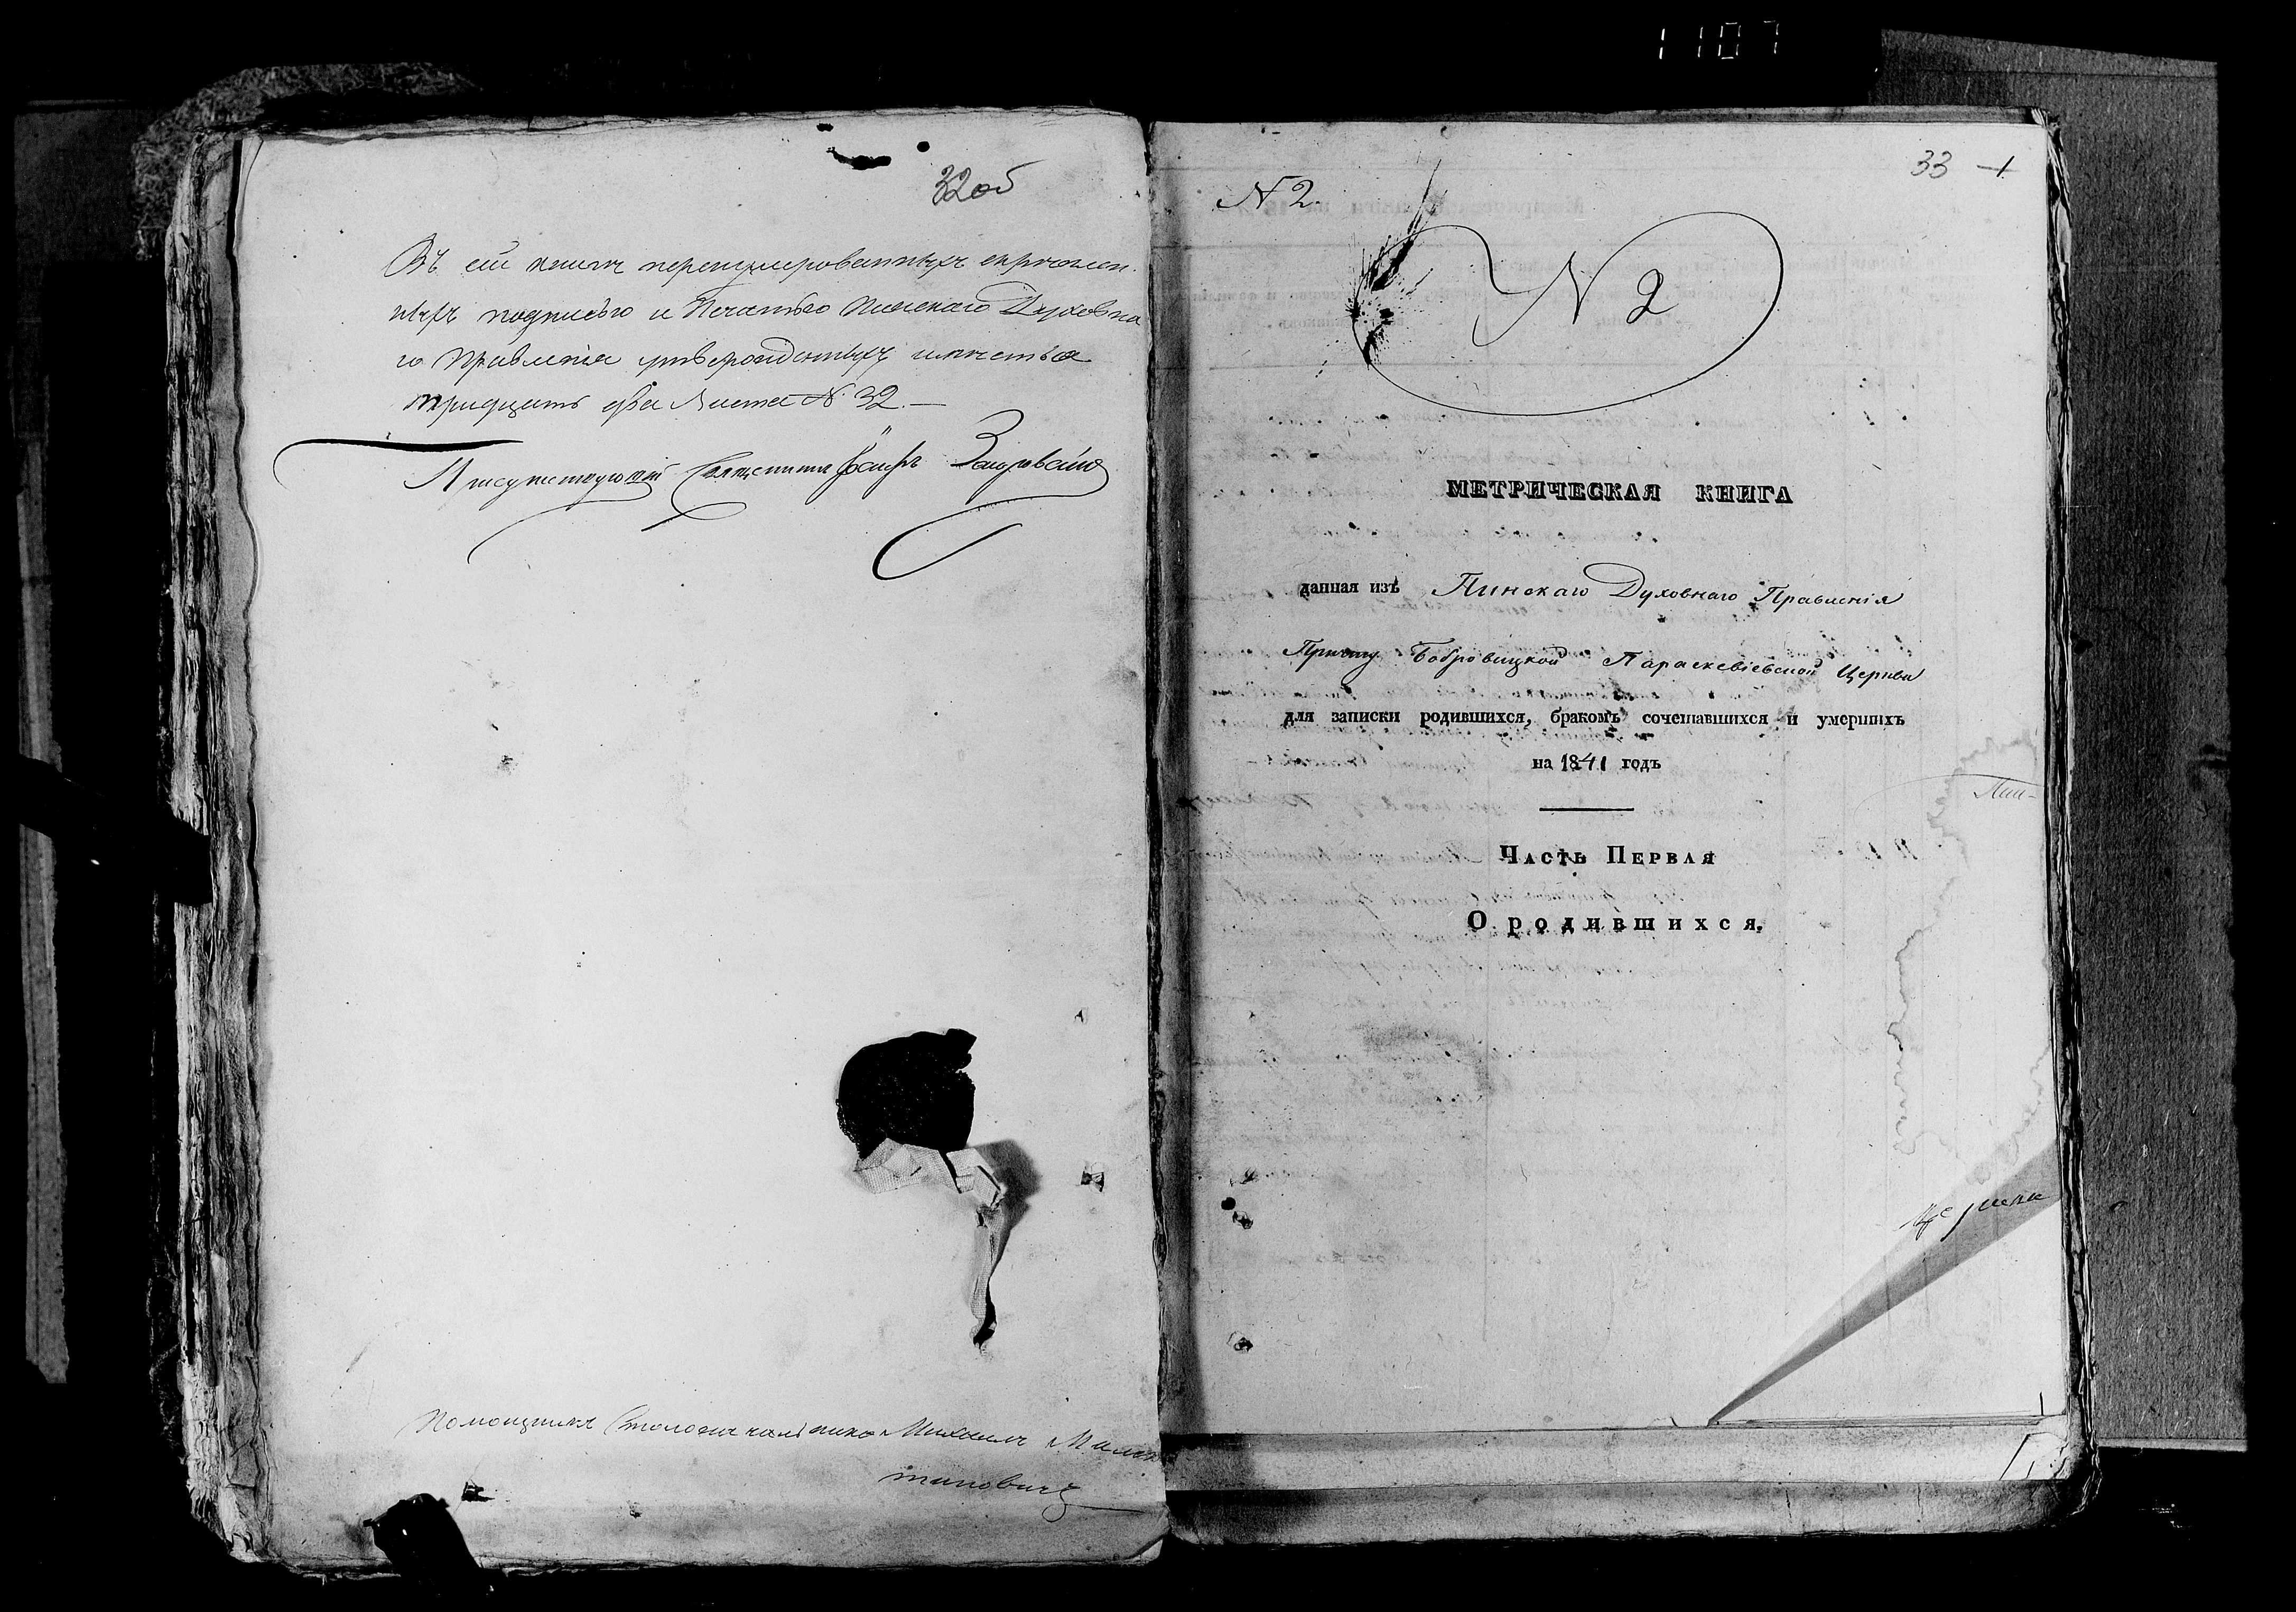 1107
32 об
Въ сей книгѣ перенумерованныхъ скрѣплен-
ныхъ подписью и Печатью Пинскаго Духовна
го Правленія утвержденныхъ имѣется
тридцать два Листа № 32.—
Присутствующій Священникъ Іоаннъ
Помощникъ Столоначальника Михаилъ
тановичъ
33 1
N 2.
N 2
МЕТРИЧЕСКАЯ КНИГА
данная изъ Пинскаго Духовнаго Правленія
Причту Бобровицкой Параскевіевской Церкви
для записки родившихся, бракомъ сочетавшихся и умершихъ
на 1841 годъ
Часть Первая
О родившихся.
Пин-